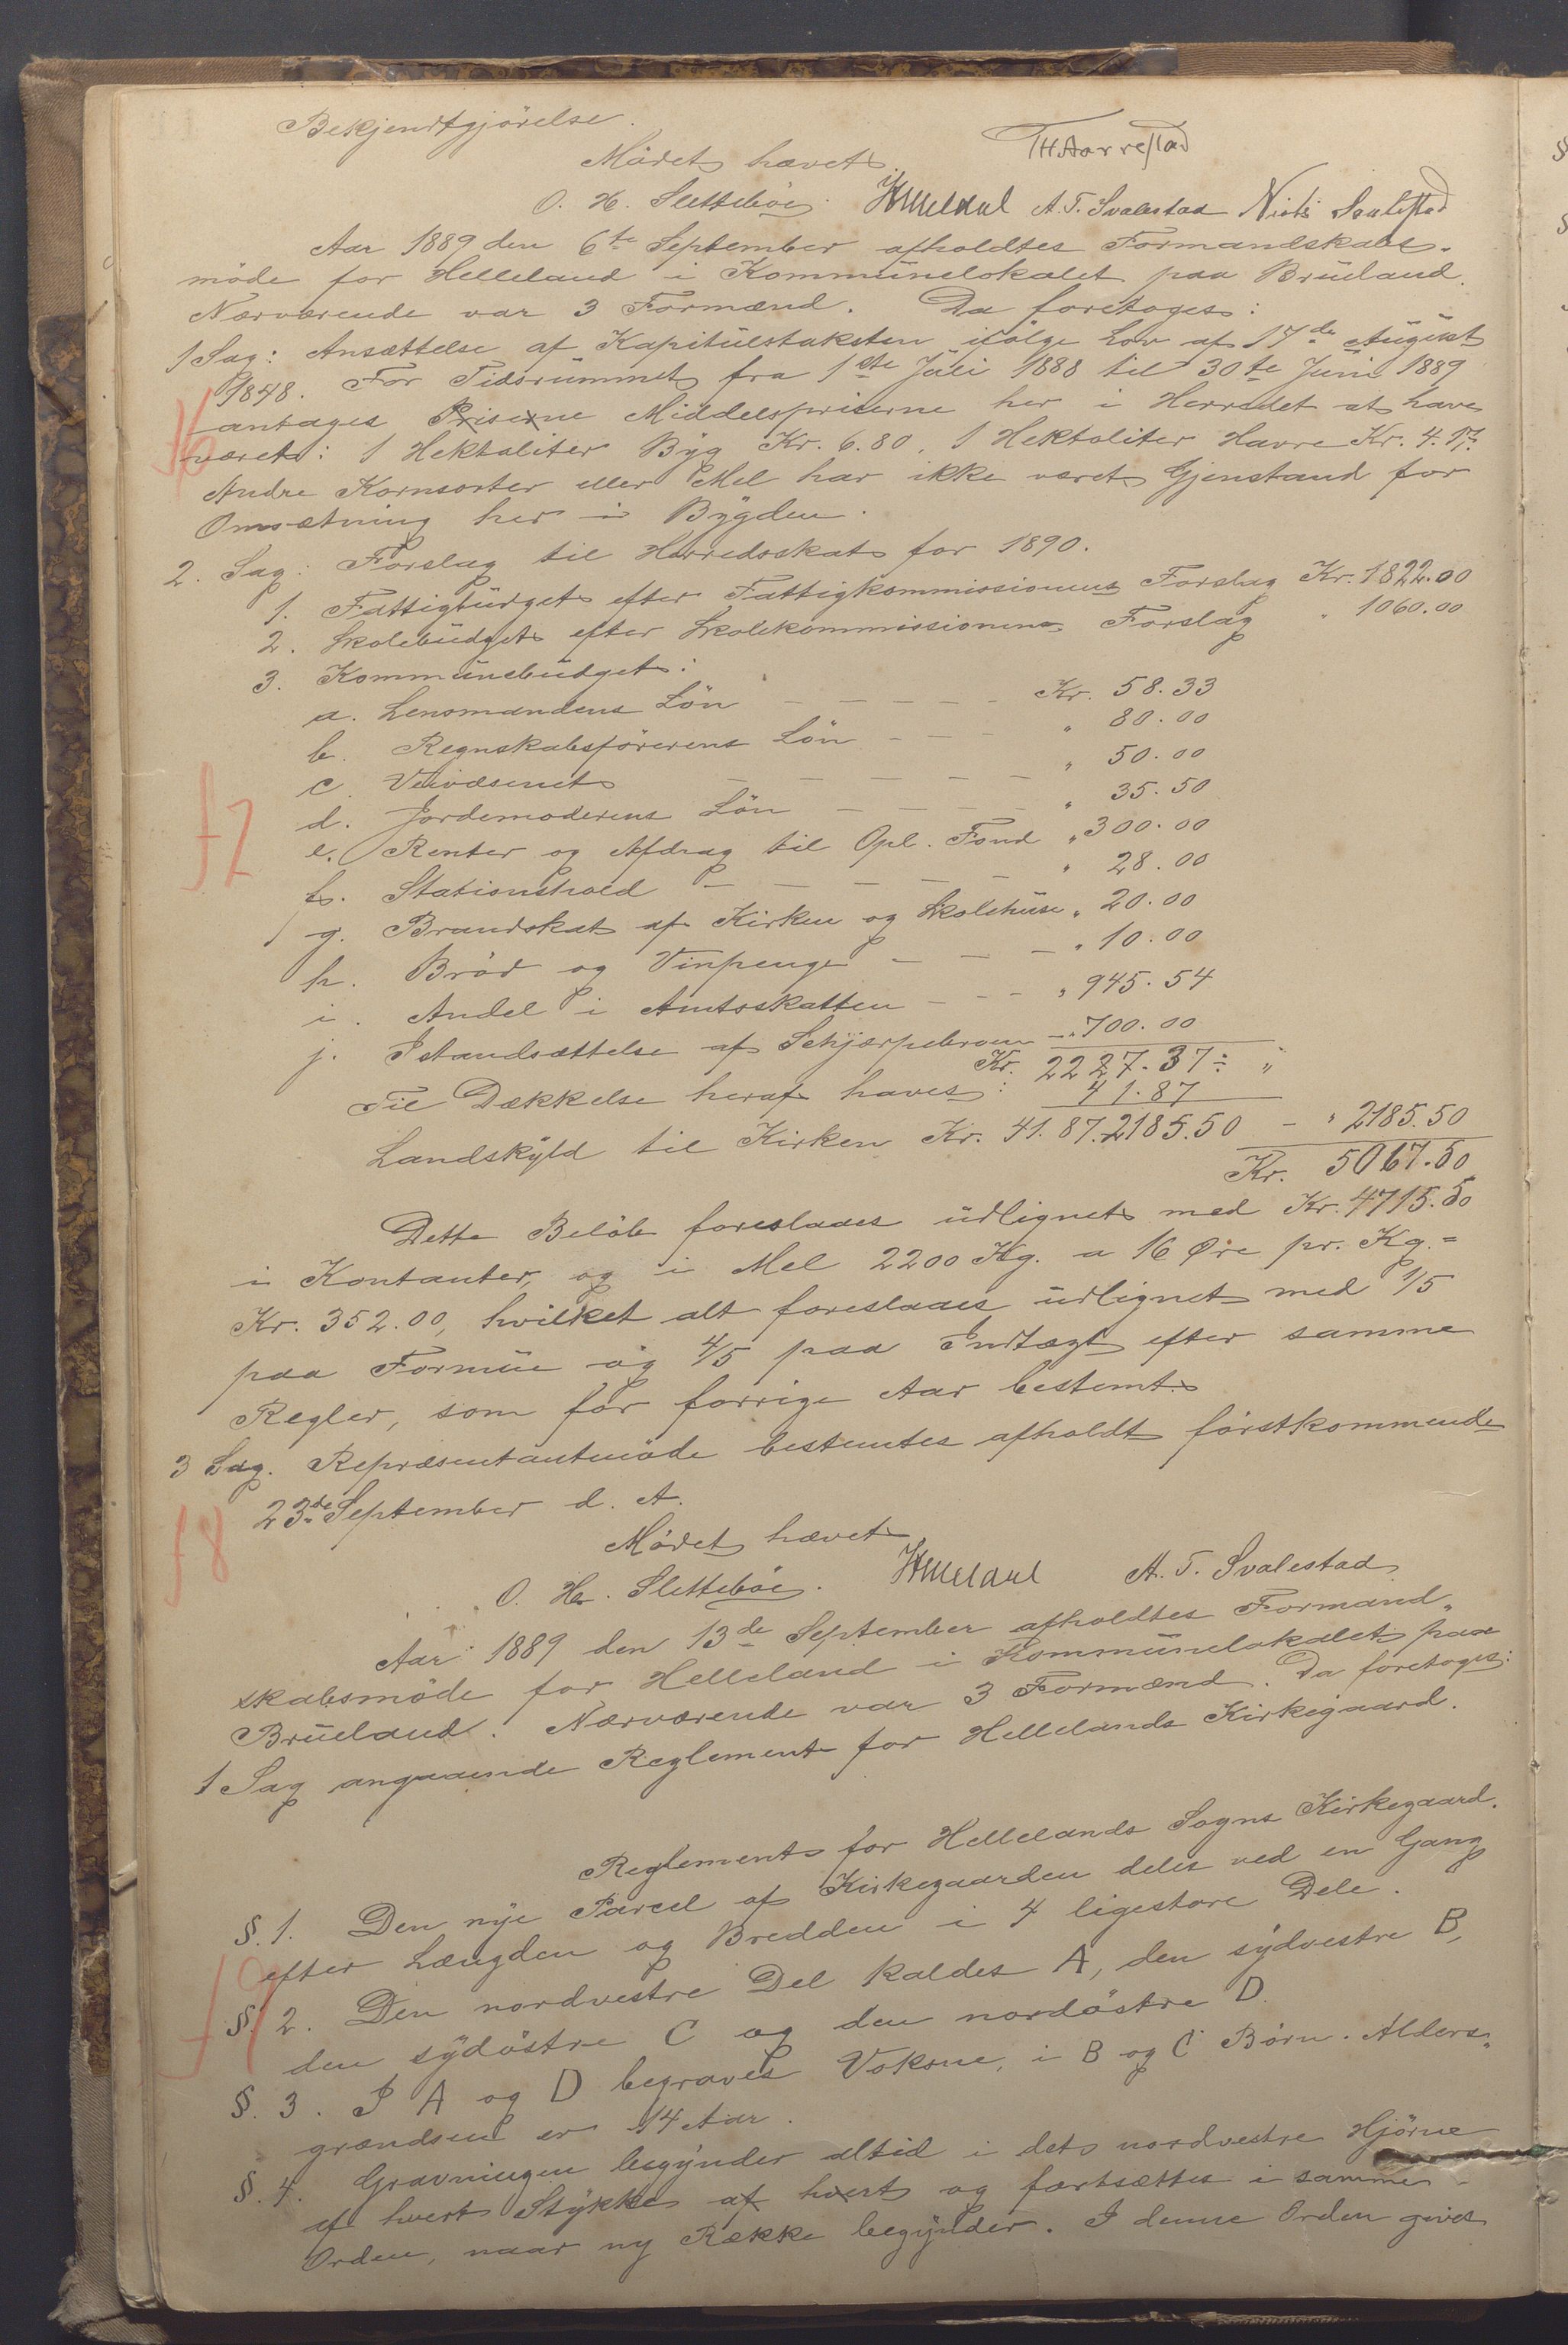 Bekjendtgjörelse.
Mödet hævet.
TH Aarrestad
O. H. Slettebøe. A. T. Svalestad Niels Svalestad
Aar 1889 den 6te September afholdtes Formandskabs-
möde for Helleland i Kommunelokalet paa Brueland.
Nærværende var 3 Formænd. Da foretoges:
1 Sag: Ansættelse af Kapitulstaksten ifölge Lov af 17de August
1848. For Tidsrummet fra 1ste Juli 1888 til 30te Juni 1889
antages Priserne Middelspriserne her i Herredet at have
været: 1 Hektoliter Byg Kr. 6.80, 1 Hektoliter Havre Kr. 4.17.
Andre Kornsorter eller Mel har ikke været Gjenstand for
Omsætning her i Bygden.
2. Sag: Forslag til Herredsskat for 1890.
1. Fattigbudget efter Fattigkommissionens Forslag Kr. 1822.00
2. Skolebudget efter Skolekommissionens Forslag " 1060.00
3. Kommunebudget:
a. Lensmandens Lön - - - - - Kr. 58.33
b. Regnskabsförerens Lön - - - " 80.00
c. Veivæsenet - - - - - " 50.00
d. Jordemoderens Lön - - - - " 35.50
e. Renter og Afdrag til Opl. Fond " 300.00
f. Stationshold - - - - - " 28.00
g. Brandskat af Kirken og Skolehuse " 20.00
h. Bröd og Vinpenge - - - " 10.00
i. Andel i Amtsskatten - - - " 945.54
j. Istandsættelse af Schjærpebroen - " 700.00
Kr. 2227.37 ÷ "
Til Dækkelse heraf haves: 41.87
Landskyld til Kirken Kr. 41.87. 2185.50 - " 2185.50
Kr. 5067.50
Dette Belöb foreslaaes udlignet med Kr. 4715.50
i Kontanter, og i Mel 2200 Kg. a 16 Øre pr. Kg. =
Kr. 352.00, hvilket alt foreslaaes udlignet med 1/5
paa Formue og 4/5 paa Indtægt efter samme
Regler, som for forrige Aar bestemt.
3 Sag. Repræsentantmöde bestemtes afholdt förstkommende
23de September d. A.
Mödet hævet
O. H. Slettebøe. A. T. Svalestad
Aar 1889 den 13de September afholdtes Formand-
skabsmöde for Helleland i Kommunelokalet paa
Brueland. Nærværende var 3 Formænd. Da foretoges:
1 Sag angaaende Reglement for Hellelands Kirkegaard.
Reglement for Hellelands Sogns Kirkegaard.
§. 1. Den nye Parcel af Kirkegaarden deles ved en Gang
efter Længden og Bredden i 4 ligestore Dele.
§. 2. Den nordvestre Del kaldes A, den sydvestre B,
den sydöstre C og den nordöstre D.
§. 3. I A og D begraves Voksne, i B og C Börn. Alders-
grændsen er 14 Aar.
§. 4. Gravningen begynder altid i det nordvestre Hjörne
af hvert Stykke af hvert og fortsættes i samme
Orden, naar ny Række begynder. I denne Orden gives